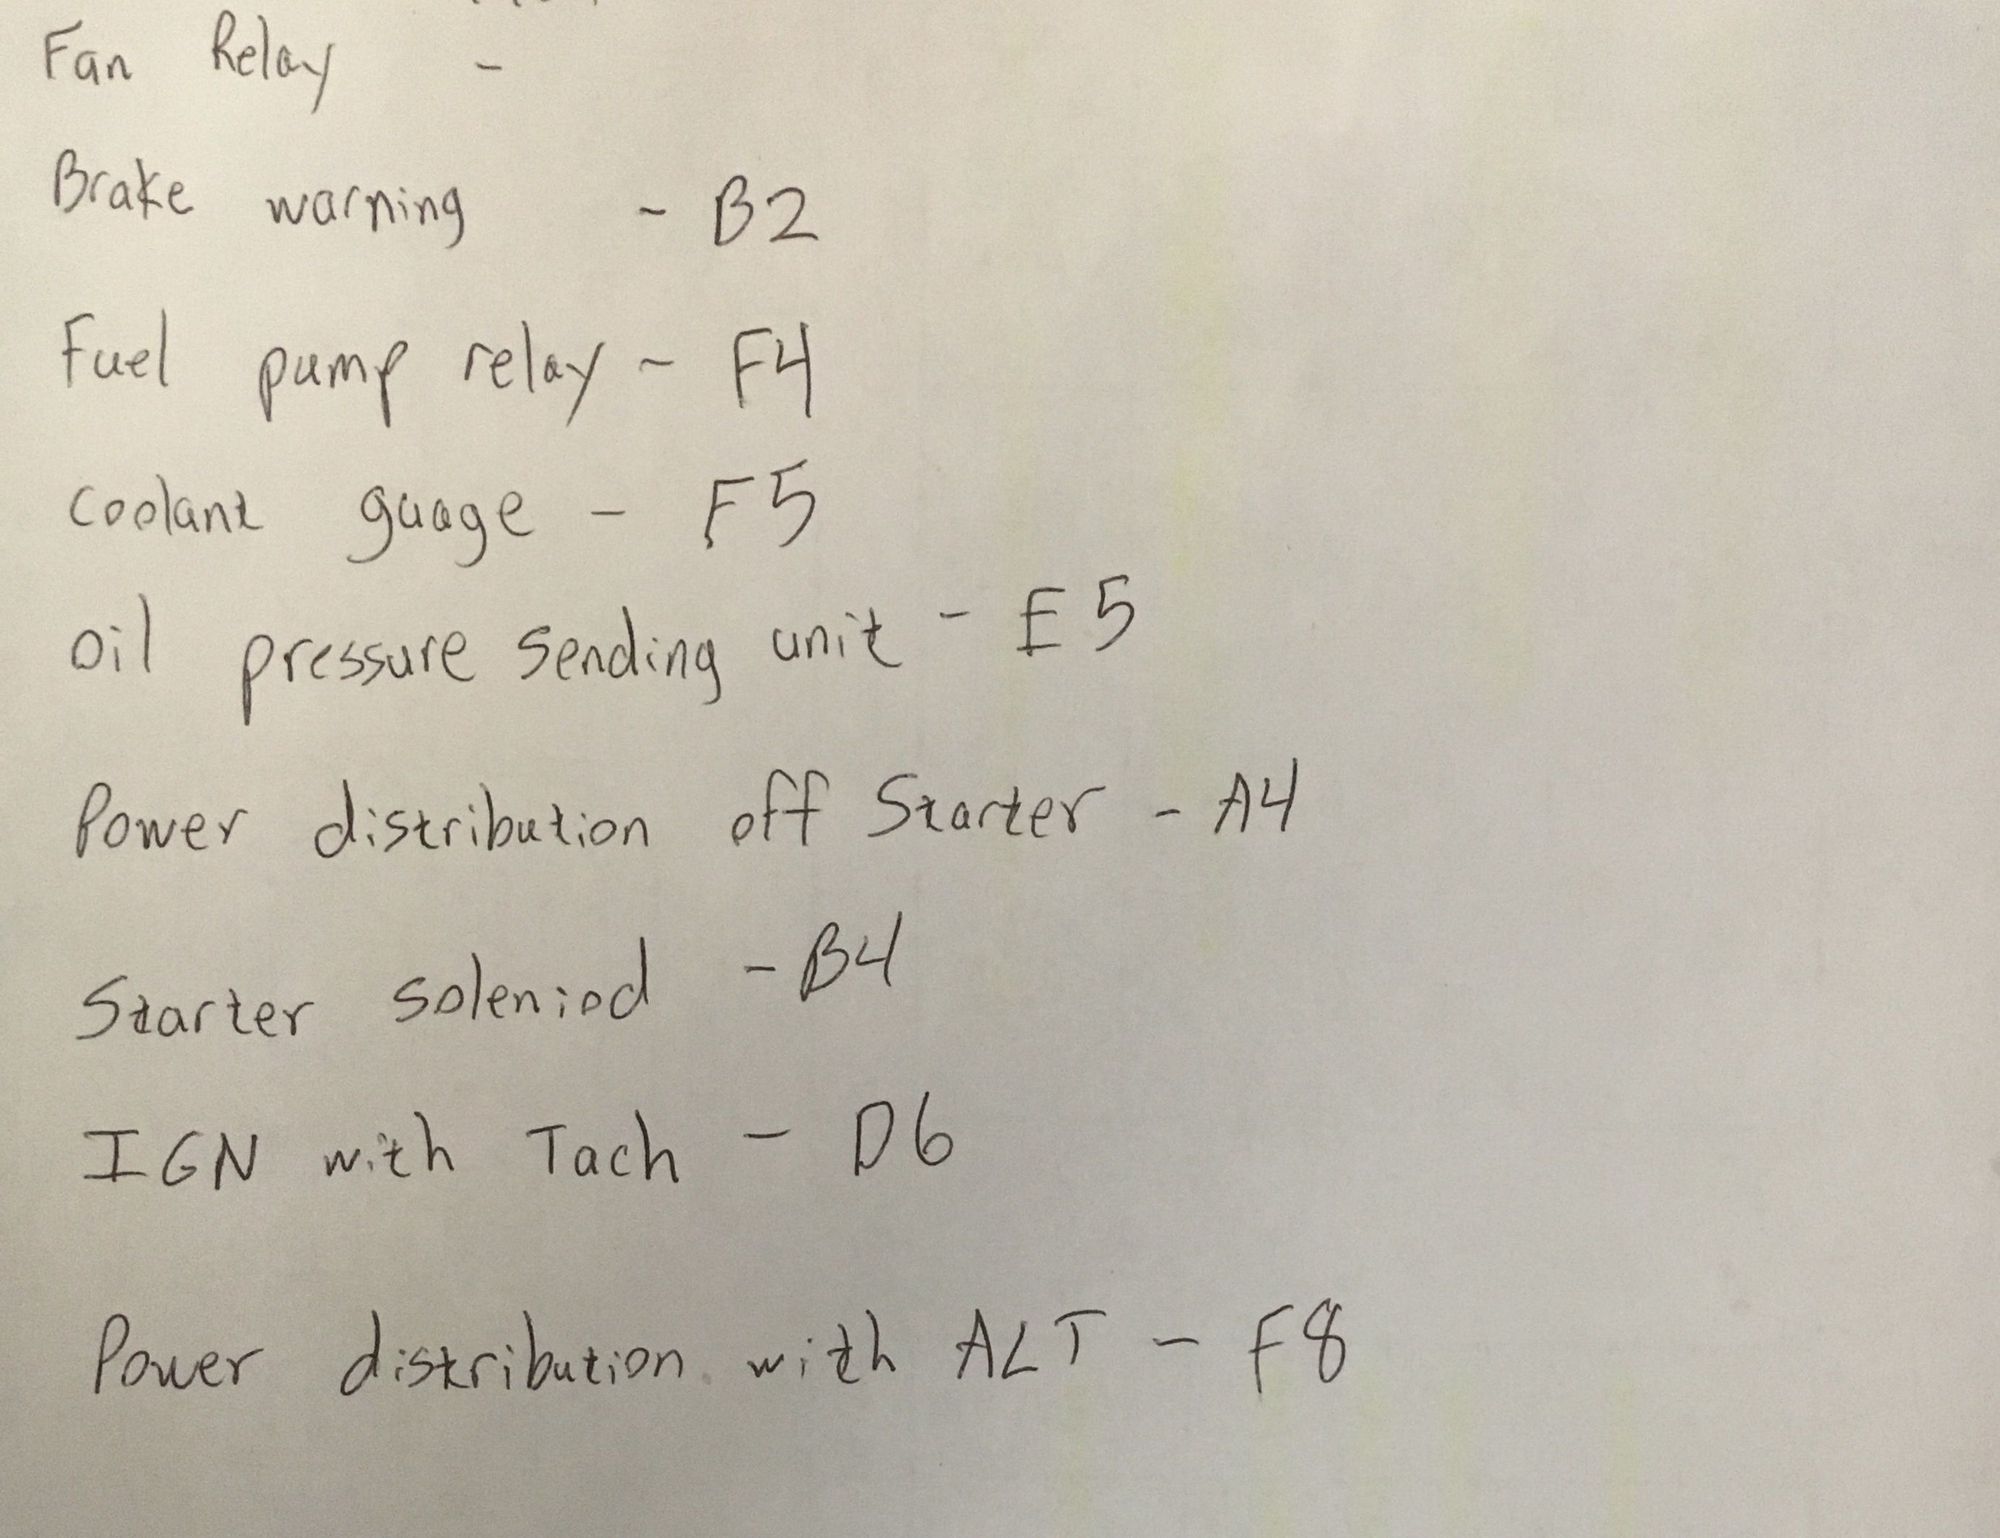 Fan Relay -
Brake warning - B2
Fuel pump relay - F4
Coolant guage - F5
Oil pressure sending unit - E5
Power distribution off Starter - A4
Starter soleniod - B4
IGN with Tach - D6
Power distribution with ALT - F8